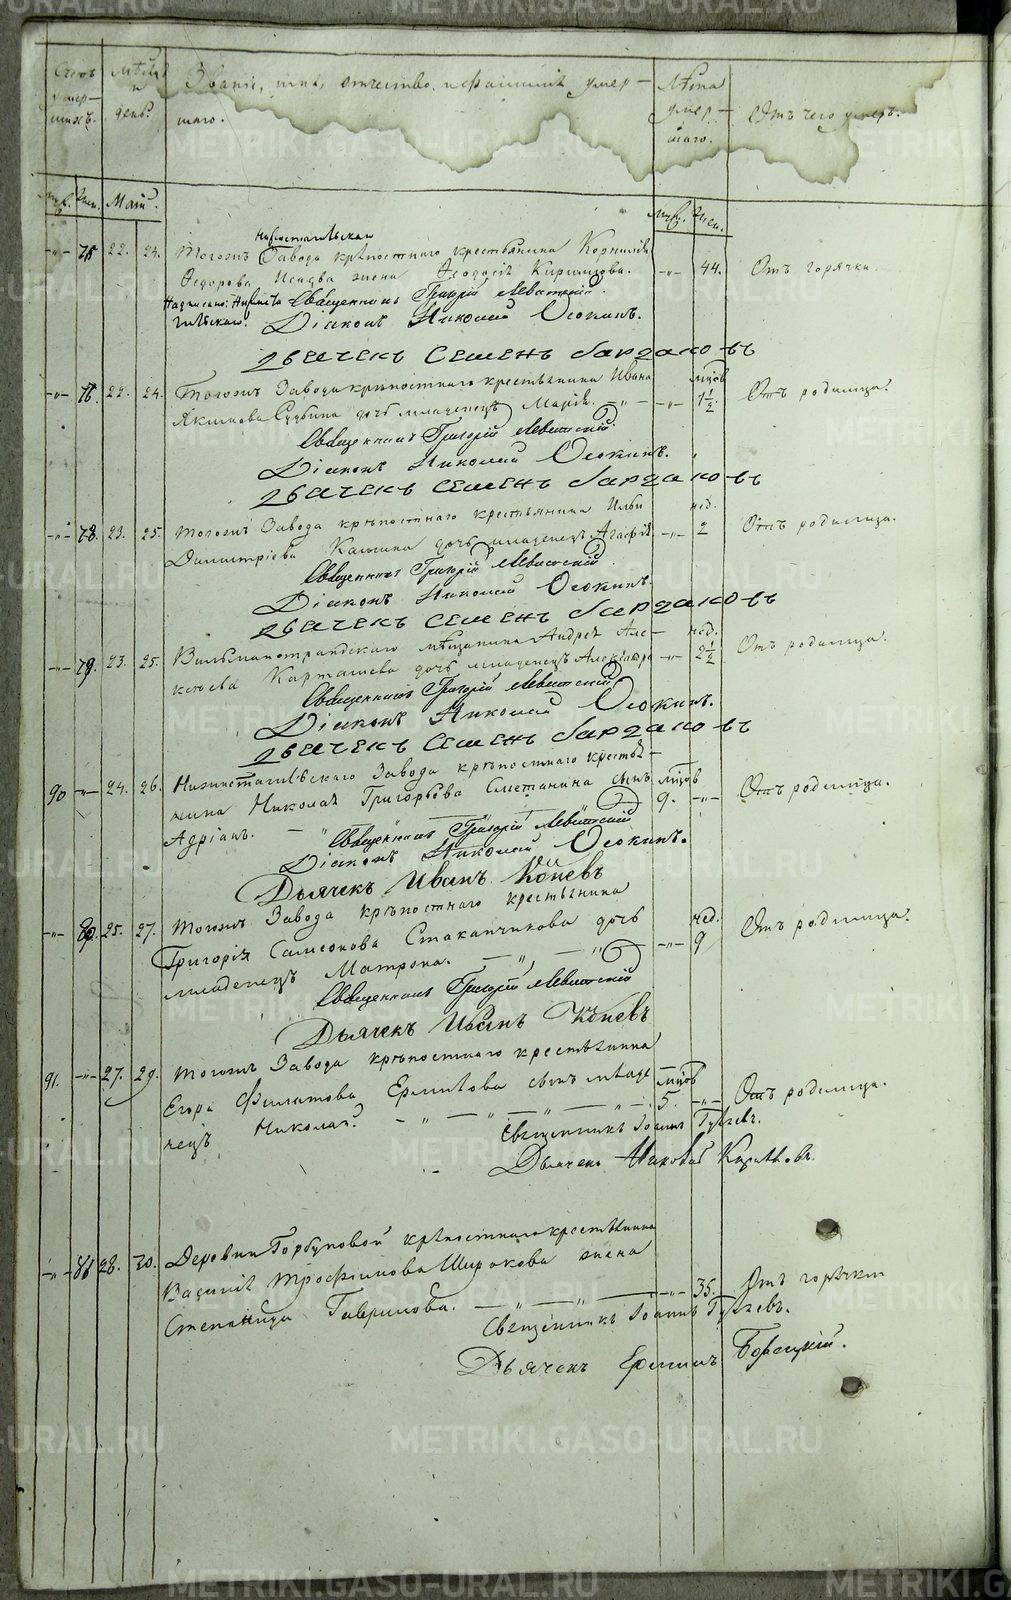 METRIKI.GASO-URAL.RU
Счетъ умер- шихъ.
Мѣсяцъ и день.
Званіе, имя, отчество, и фамилія умер-
шаго.
Лѣта умер- шаго.
Отъ чего умеръ.
муж. жен. Май.
муж. жен.
Нижнетагильскаго
-"- 22. 24. Тогожъ Завода крѣпостнаго крестьянина Корнилія
Ѳедорова Исаева жена Ѳеодосія Кирилова. -"- 44. Отъ горячки.
Надписано: Нижнета
гильскаго.
Священникъ Григорій Левитскій.
Діаконъ Николай Осокинъ.
дьячекъ Семенъ
-"- 22. 24. Тогожъ Завода крѣпостнаго крестьянина Ивана
Якимова дочь младенецъ Марія. -"- -"- 1½. Отъ родимца.
Священникъ Григорій Левитскій
Діаконъ Николай Осокинъ.
дьячекъ Семенъ
-"- 78. 23. 25. Тогожъ Завода крѣпостнаго крестьянина Ильи нед.
Димитріева дочь младенецъ Агафія -"- 2 Отъ родимца.
Священникъ Григорій Левитскій
Діаконъ Николай Осокинъ.
дьячекъ Семенъ
-"- 79. 23. 25. Вильманстрандскаго мѣщанина Андрея Але- нед.
ксѣева Карташева дочь младенецъ Александра -"- 2½ Отъ родимца.
Священникъ Григорій Левитскій
Діаконъ Николай Осокинъ.
дьячекъ Семенъ
90 -"- 24. 26. Нижнетагильскаго Завода крѣпостнаго крестья-
нина Николая Григорьева Сметанина сынъ 9. -"- Отъ родимца.
Адріанъ.
Священникъ Григорій Левитскій
Діаконъ Николай Осокинъ.
Дьячекъ Иванъ Коневъ
-"- 80. 25. 27. Тогожъ Завода крѣпостнаго крестьянина
Григорія Самсонова Стаканчикова дочь нед.
младенецъ Матрона. -"- 9 Отъ родимца.
Священникъ Григорій Левитскій
Дьячекъ Иванъ Коневъ
91. -"- 27. 29. Тогожъ Завода крѣпостнаго крестьянина
Егора Филатова Ермакова сынъ младе
нецъ Николай. 5. -"- Отъ родимца.
Священникъ Іоаннъ
Дьячекъ
-"- 81 28. 30. Деревни Горбуновой крѣпостнаго крестьянина
Василія Трофимова Широкова жена
Степанида Гаврилова. -"- 35. Отъ горячки
Священникъ Іоаннъ
Дьячекъ